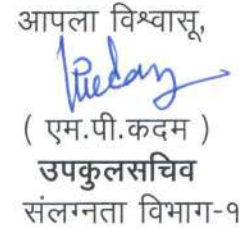 आपला विश्वासू,
( एम.पी.कदम )
उपकुलसचिव
संलग्नता विभाग-१